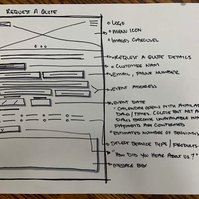 REQUEST A QUOTE
LOGO
MENU ICON
IMAGES CAROUSEL
REQUEST A QUOTE DETAILS
CUSTOMER NAME
EMAIL, PHONE NUMBER
EVENT ADDRESS
EVENT DATE
- CALENDAR OPENS WITH AVAILABLE
DAYS/TIMES. (
BECOME UNAVAILABLE
PAYMENTS ARE CONFIRMED
ESTIMATED NUMBER OF
SELECT SERVICE TYPE /
"HOW DID YOU HEAR ABOUT US?"
MESSAGE BOX